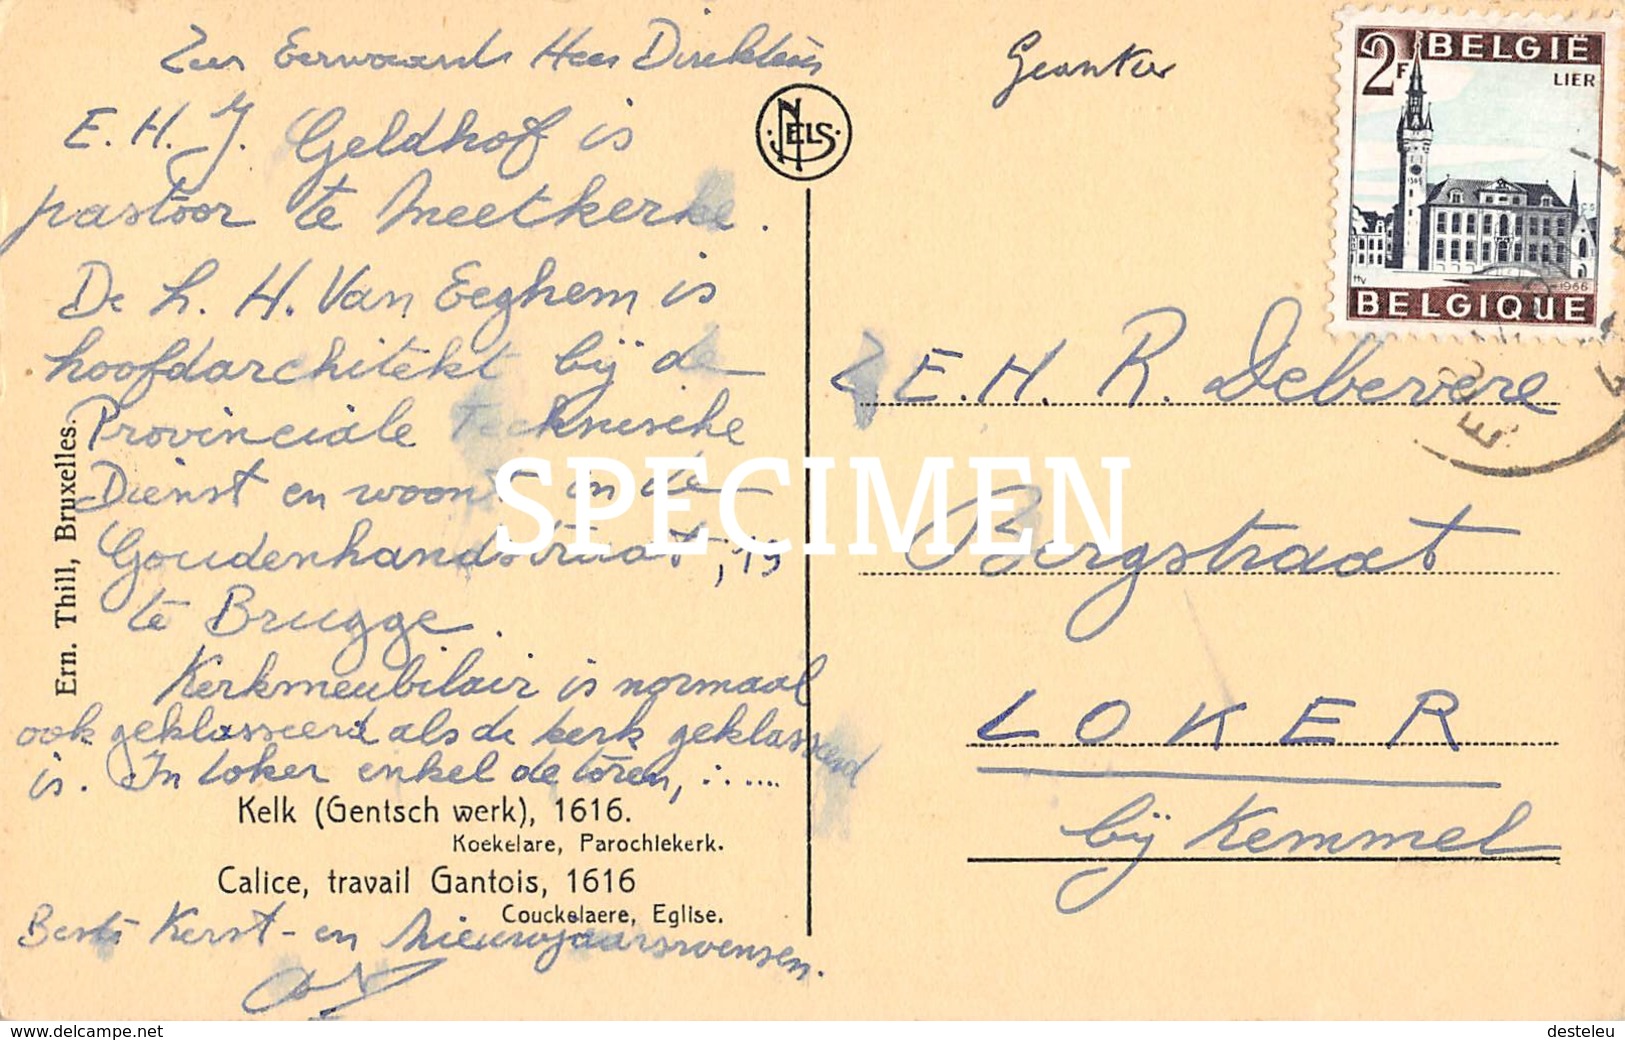 Zeer Eerwaarde Heer Direkteur
E. H. J. Geldhof is
pastoor te Meetkerke.
De h. H. Van Eeghem is
hoofdarchitekt bij de
Provinciale technische
Dienst en woont in de
Goudenhandstraat, 19
te Brugge.
Kerkmeubilair is normaal
ook geklasseerd als de kerk geklasseerd
is. In Loker enkel de toren, ......
Kelk (Gentsch werk), 1616.
Koekelare, Parochiekerk.
Calice, travail Gantois, 1616
Couckelaere, Eglise.
Beste Kerst- en Nieuwjaarswensen.
Ern. Thill, Bruxelles.
NELS
2F BELGIË
LIER
1966
BELGIQUE
Z.E.H. R. Debevere
Bergstraat
LOKER
bij Kemmel
SPECIMEN
www.delcampe.net
desteleu